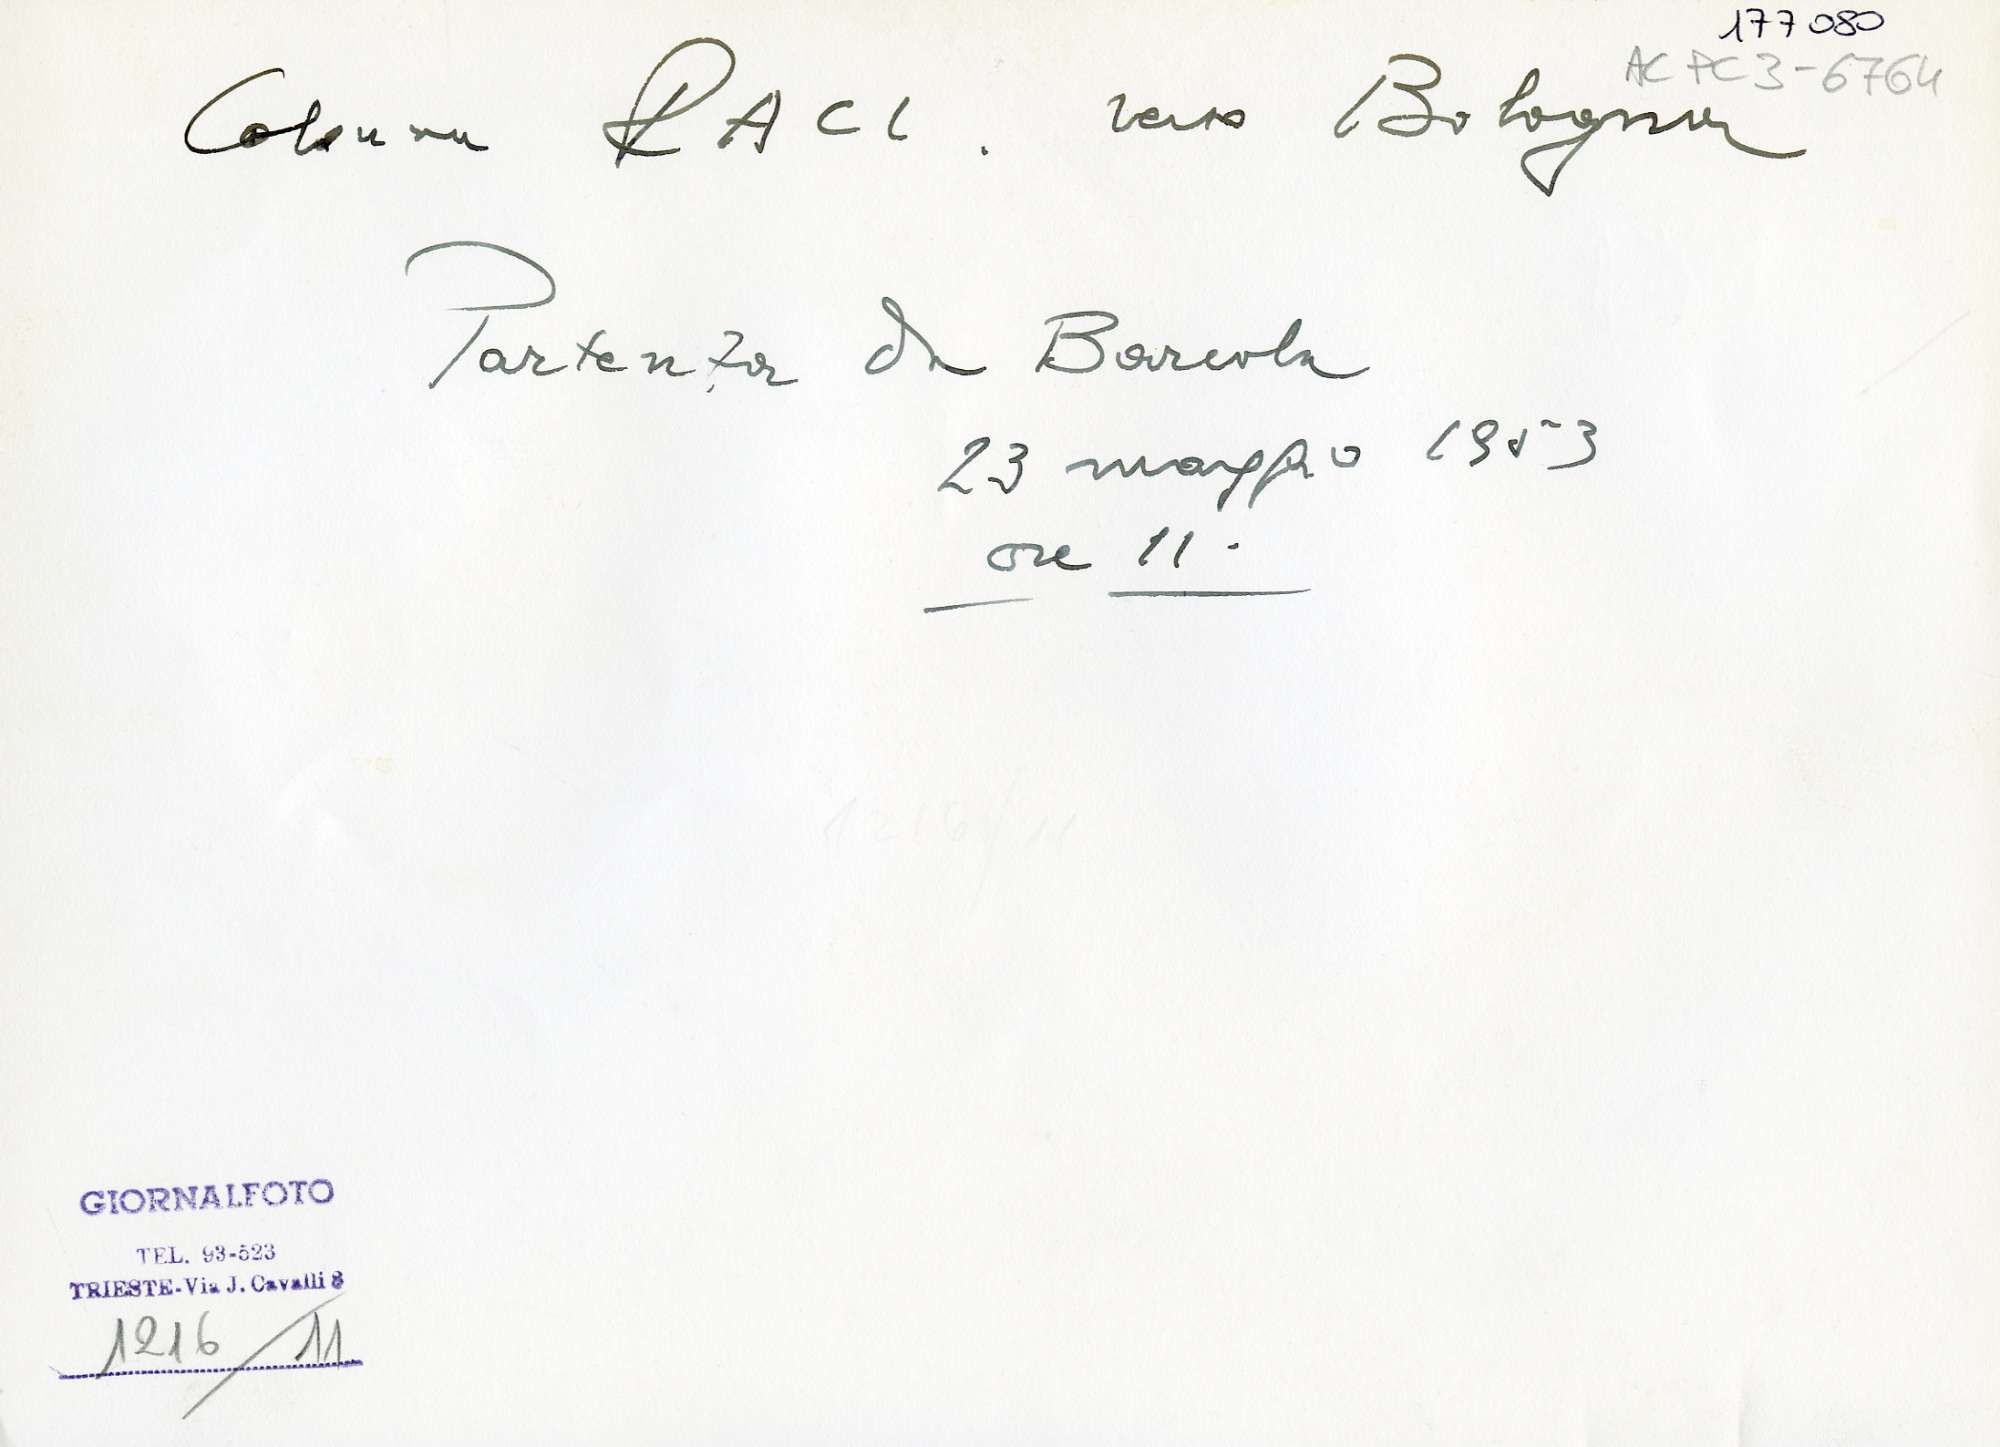 177080
AC PC 3-6764
Colonna RACI. verso Bologna
Partenza da Barcola
23 maggio 1953
ore 11.
1216/11
GIORNALFOTO
TEL. 93-523
TRIESTE-Via J. Cavalli 8
1216/11